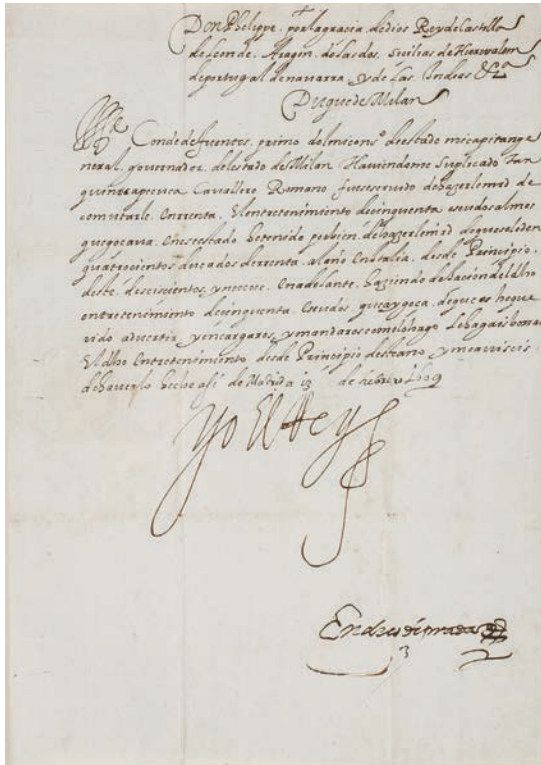 Don Phelipe por la gracia de dios Rey de Castilla
de Leon de Aragon de las dos Sicilias de Hierusalem
de portugal de navarra y de las Indias &c.ª
Duque de Milan
Conde de fuentes primo del mi cons.º de estado mi capitan ge
neral governador del estado de Milan Haviendome Suplicado
Cavallero Romano fuesse servido de hazerle m.d de
comutarle En renta El entretenimiento de cinquenta escudos al mes
que goçava En esse estado he tenido por bien de hazerle m.d de que se le den
quatrocientos ducados de renta al año En Italia desde Principio
deste de seiscientos y nueve En adelante haziendo dexacion del dho
entretenimiento de cinquenta Escudos que ay goça de que os he que
rido advertir y encargaros y mandaros como lo hago le hagais
El dho Entretenimiento desde Principio deste año y me aviseis
de haverlo hecho assi de Madrid a 13 de hebrero 1609
Yo El Rey
Endres de prada